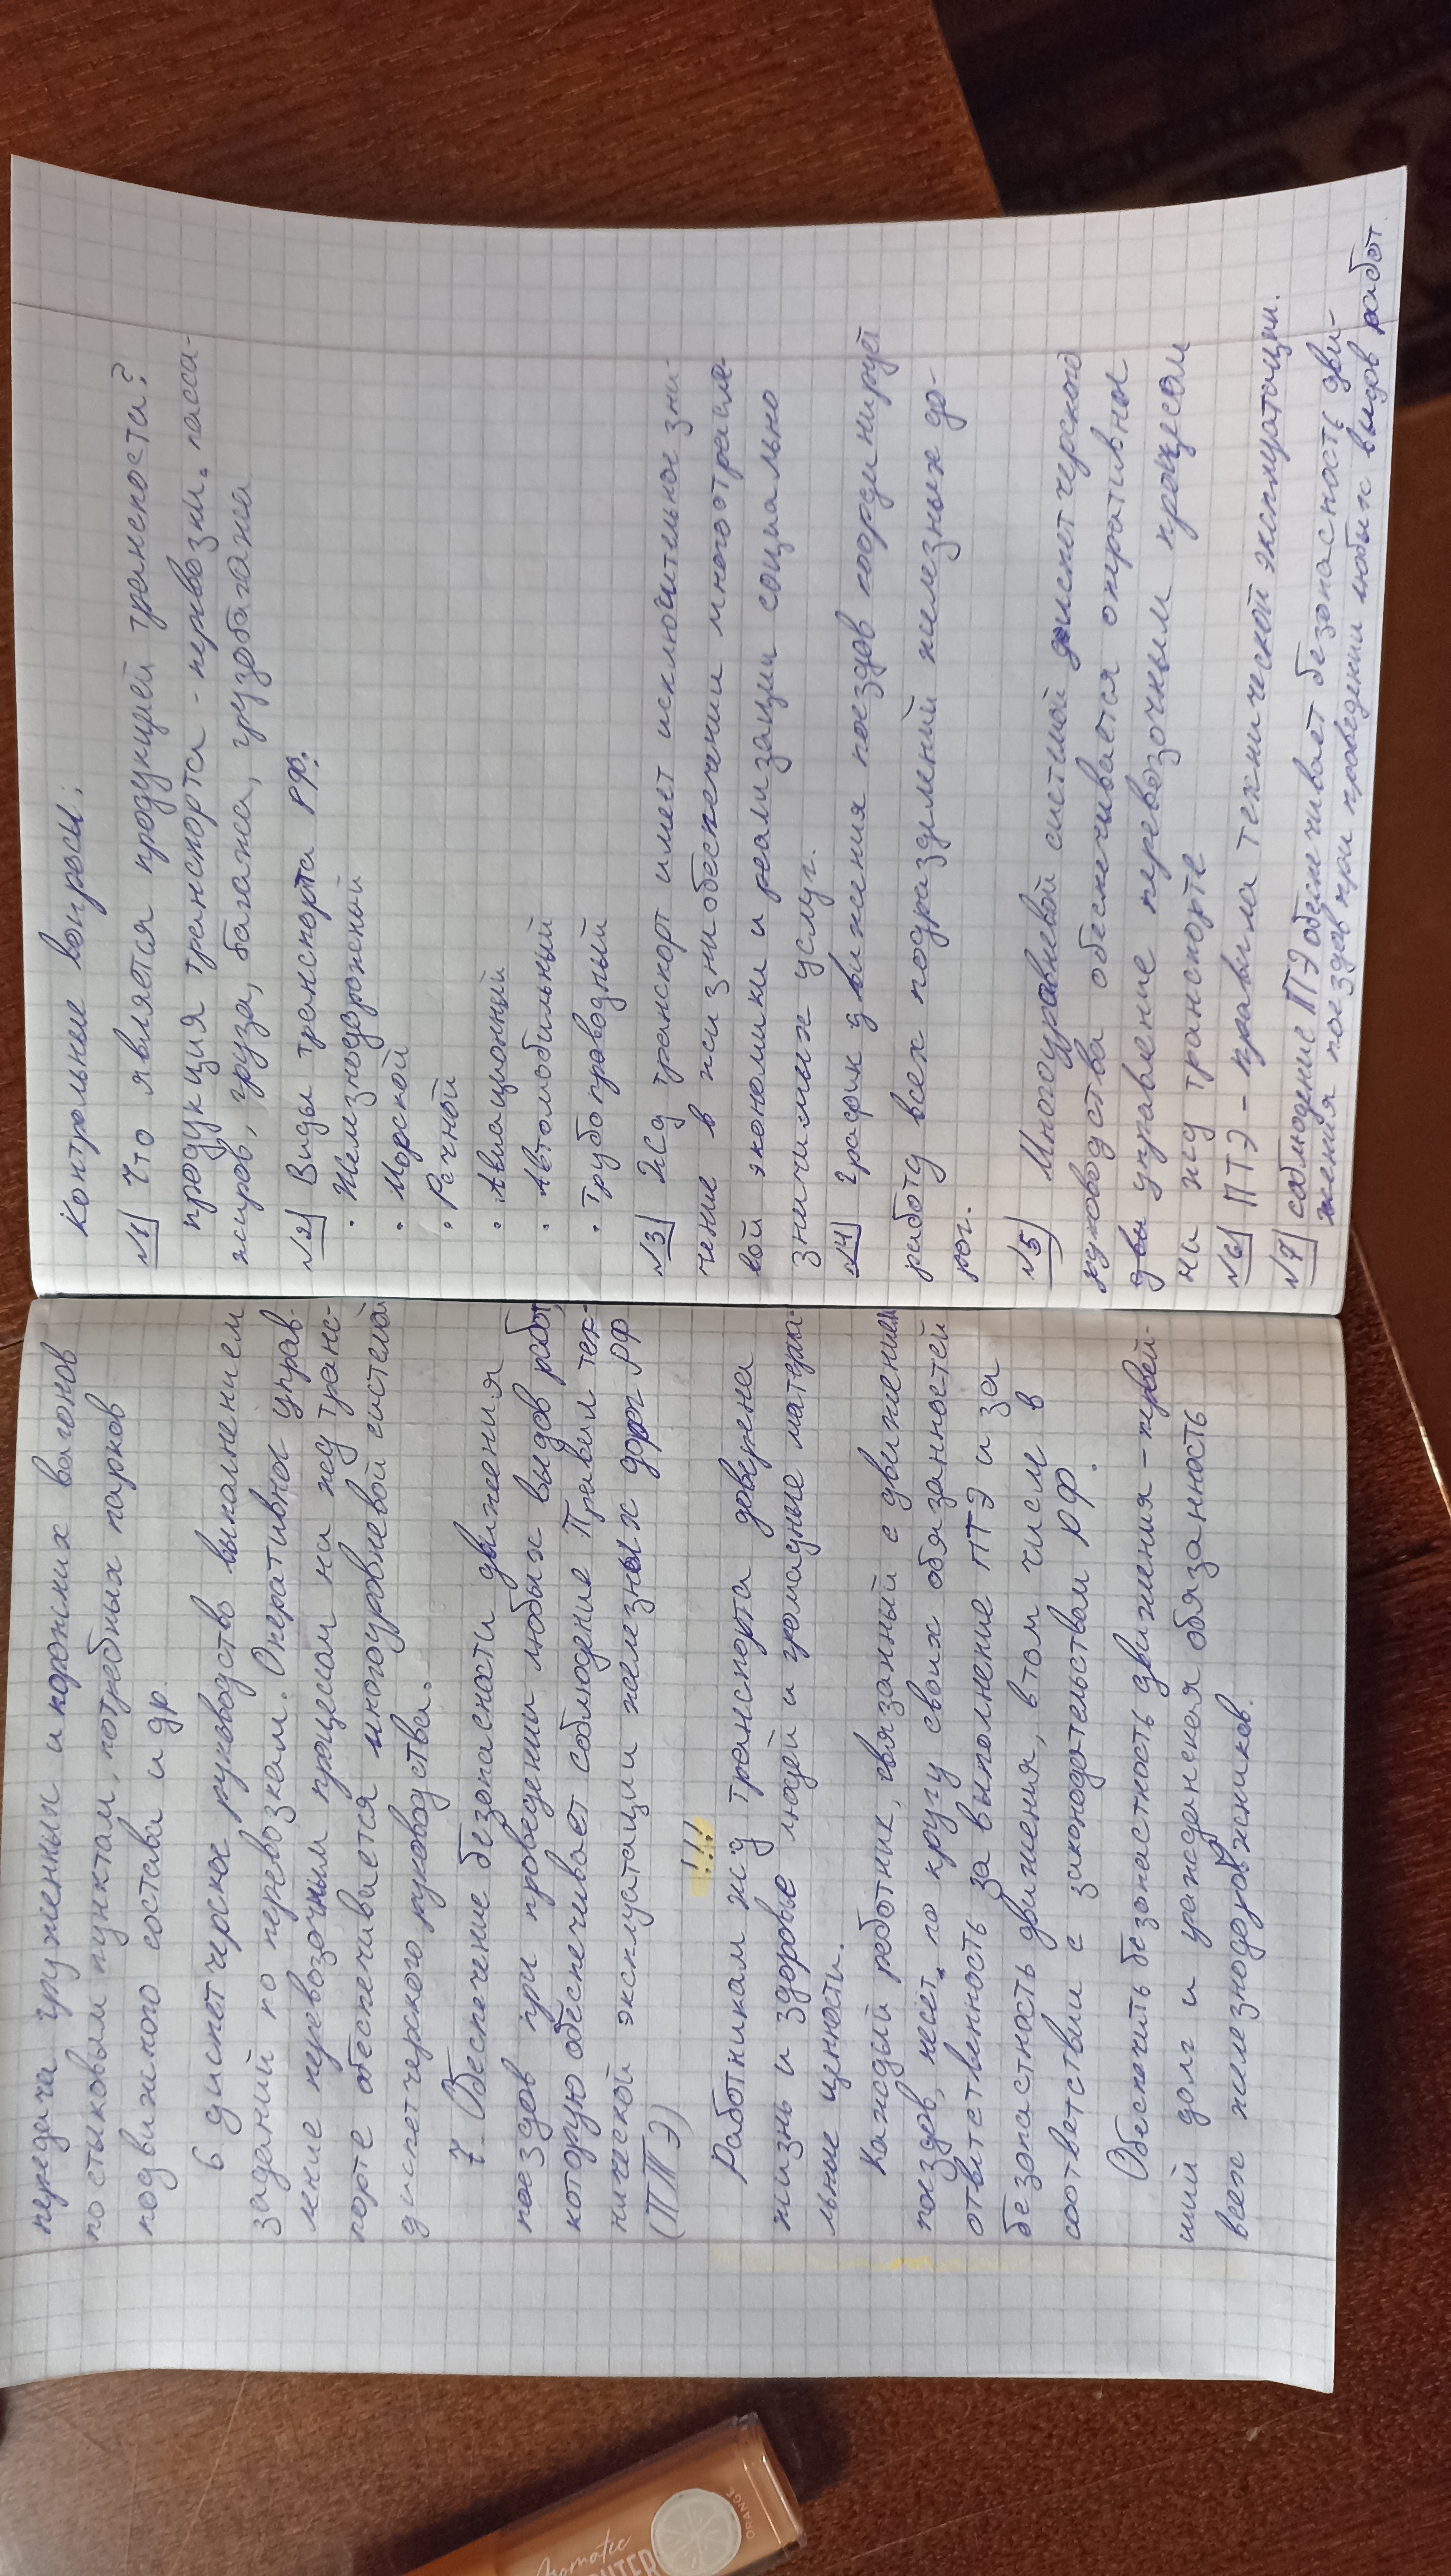 передача груженных и порожних вагонов
по стыковым пунктам, потребных парков
подвижного состава и др.
6 диспетчерское руководство выполнением
заданий по перевозкам. Оперативное управ-
ление перевозочным процессом на жд транс-
порте обеспечивается многоуровневой системой
диспетчерского руководства.
7 Обеспечение безопасности движения
поездов при проведении любых видов работ,
которую обеспечивает соблюдение Правил тех-
нической эксплуатации железных дорог РФ
(ПТЭ)
!!!
Работникам жд транспорта доверена
жизнь и здоровье людей и громадные материа-
льные ценности.
Каждый работник, связанный с движением
поездов, несет по кругу своих обязанностей
ответственность за выполнение ПТЭ и за
безопастность движения, в том числе в
соответствии с законодательством РФ.
Обеспечить безопастность движения - первей-
ший долг и гражданская обязанность
всех железнодорожников.
Контрольные вопросы:
№1 Что является продукцией транспоста?
продукция транспорта - перевозки пасса-
жиров, груза, багажа, грузобагажа
№2 Виды транспорта РФ.
• Железнодорожный
• Морской
• Речной
• Авиационный
• Автомобильный
• Трубопроводный
№3 Жд транскорт имеет исключительное зна-
чение в жизнеобеспечении многоотрасле-
вой экономики и реализации социально
значимых услуг.
№4 график движения поездов координирует
работу всех подразделений железных до-
рог.
№5 Многоуравневой системой диспетчерского
руководства обеспечивается оперативное
управление перевозочным процессом
на жд транспорте
№6 ПТЭ - правила технической эксплуатации.
№7 соблюдение ПТЭ обеспечивает безопасность дви-
жения поездов при проведении любых видов работ.
Aromatic
ORANGE